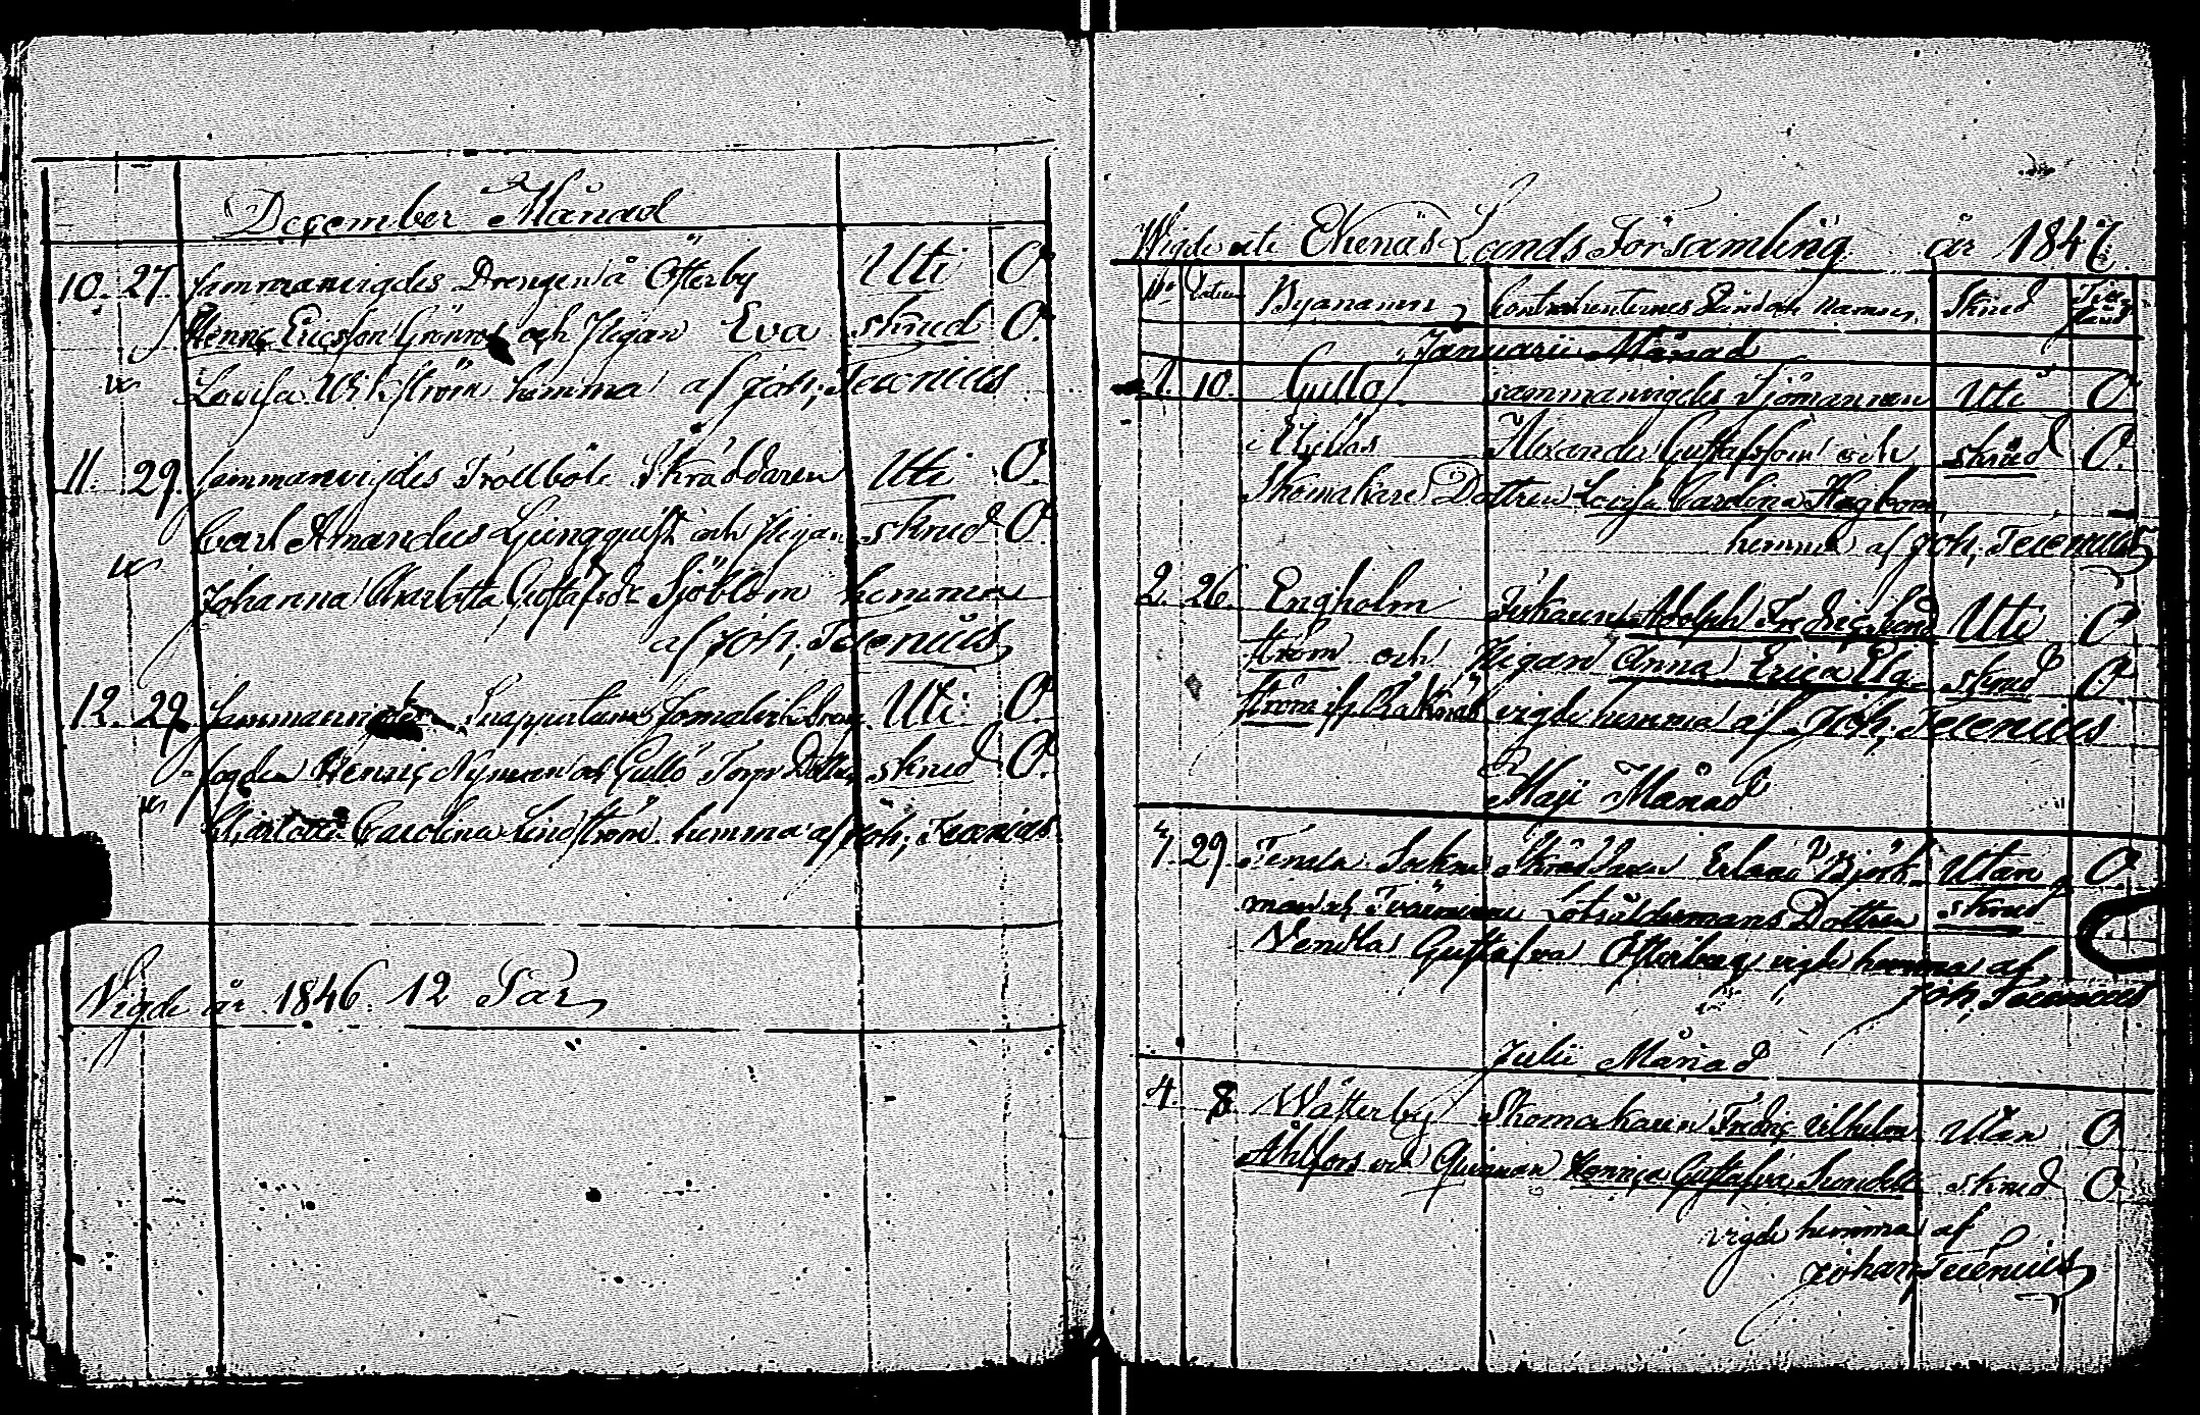 December Månad
10. 27. sammanvigdes Drengen å Österby Uti O
Henric Ericsson Grönroos och Pigan Eva skrud O.
Lovisa Wikström hemma af Joh; Tecenius
11. 29. sammanvigdes Trollböle Skräddaren Uti O.
Carl Amandus Ljungquist och Pigan skrud O.
Johanna Charlotta Gustafsdr Sjöblom hemma
af Joh; Tecenius
12. 29. Sammanvigdes Snappertuna Uti O.
fogden Henric Nyman och Gullö Torp Dottren skrud O.
Charlotta Carolina Lindström hemma af Joh; Tecenius
Vigde år 1846. 12 Par
Wigde uti Ekenäs Lands Församling år 1847.
No Datum Byanamn, Contrahenternes Namn, Skrud
Januarii Månad
1. 10. Gullö sammanvigdes Sjömannen Uti O
Alexander Gustafsson och skrud O.
Skomakare Dottren Lovisa Carolina Hagbom
hemma af Joh; Tecenius
2. 26. Engholm Adolph Fredric Uti O
ström och Pigan Anna Erica skrud O
ström vigde hemma af Joh; Tecenius
Maji Månad
29. Tenala Socken Skräddaren Björk- Utan O.
man och Tvärminne Lotsåldermans Dottren skrud
Vendla Gustafva Österberg, vigde hemma af
Joh, Tecenius
Julii Månad
4. 8 Wästerby Skomakaren Fredric Vilhelm Utan O
Ahlfors och Qvinnan Henrica Gustafva Sundell skrud O
vigde hemma af
Johan Tecenius